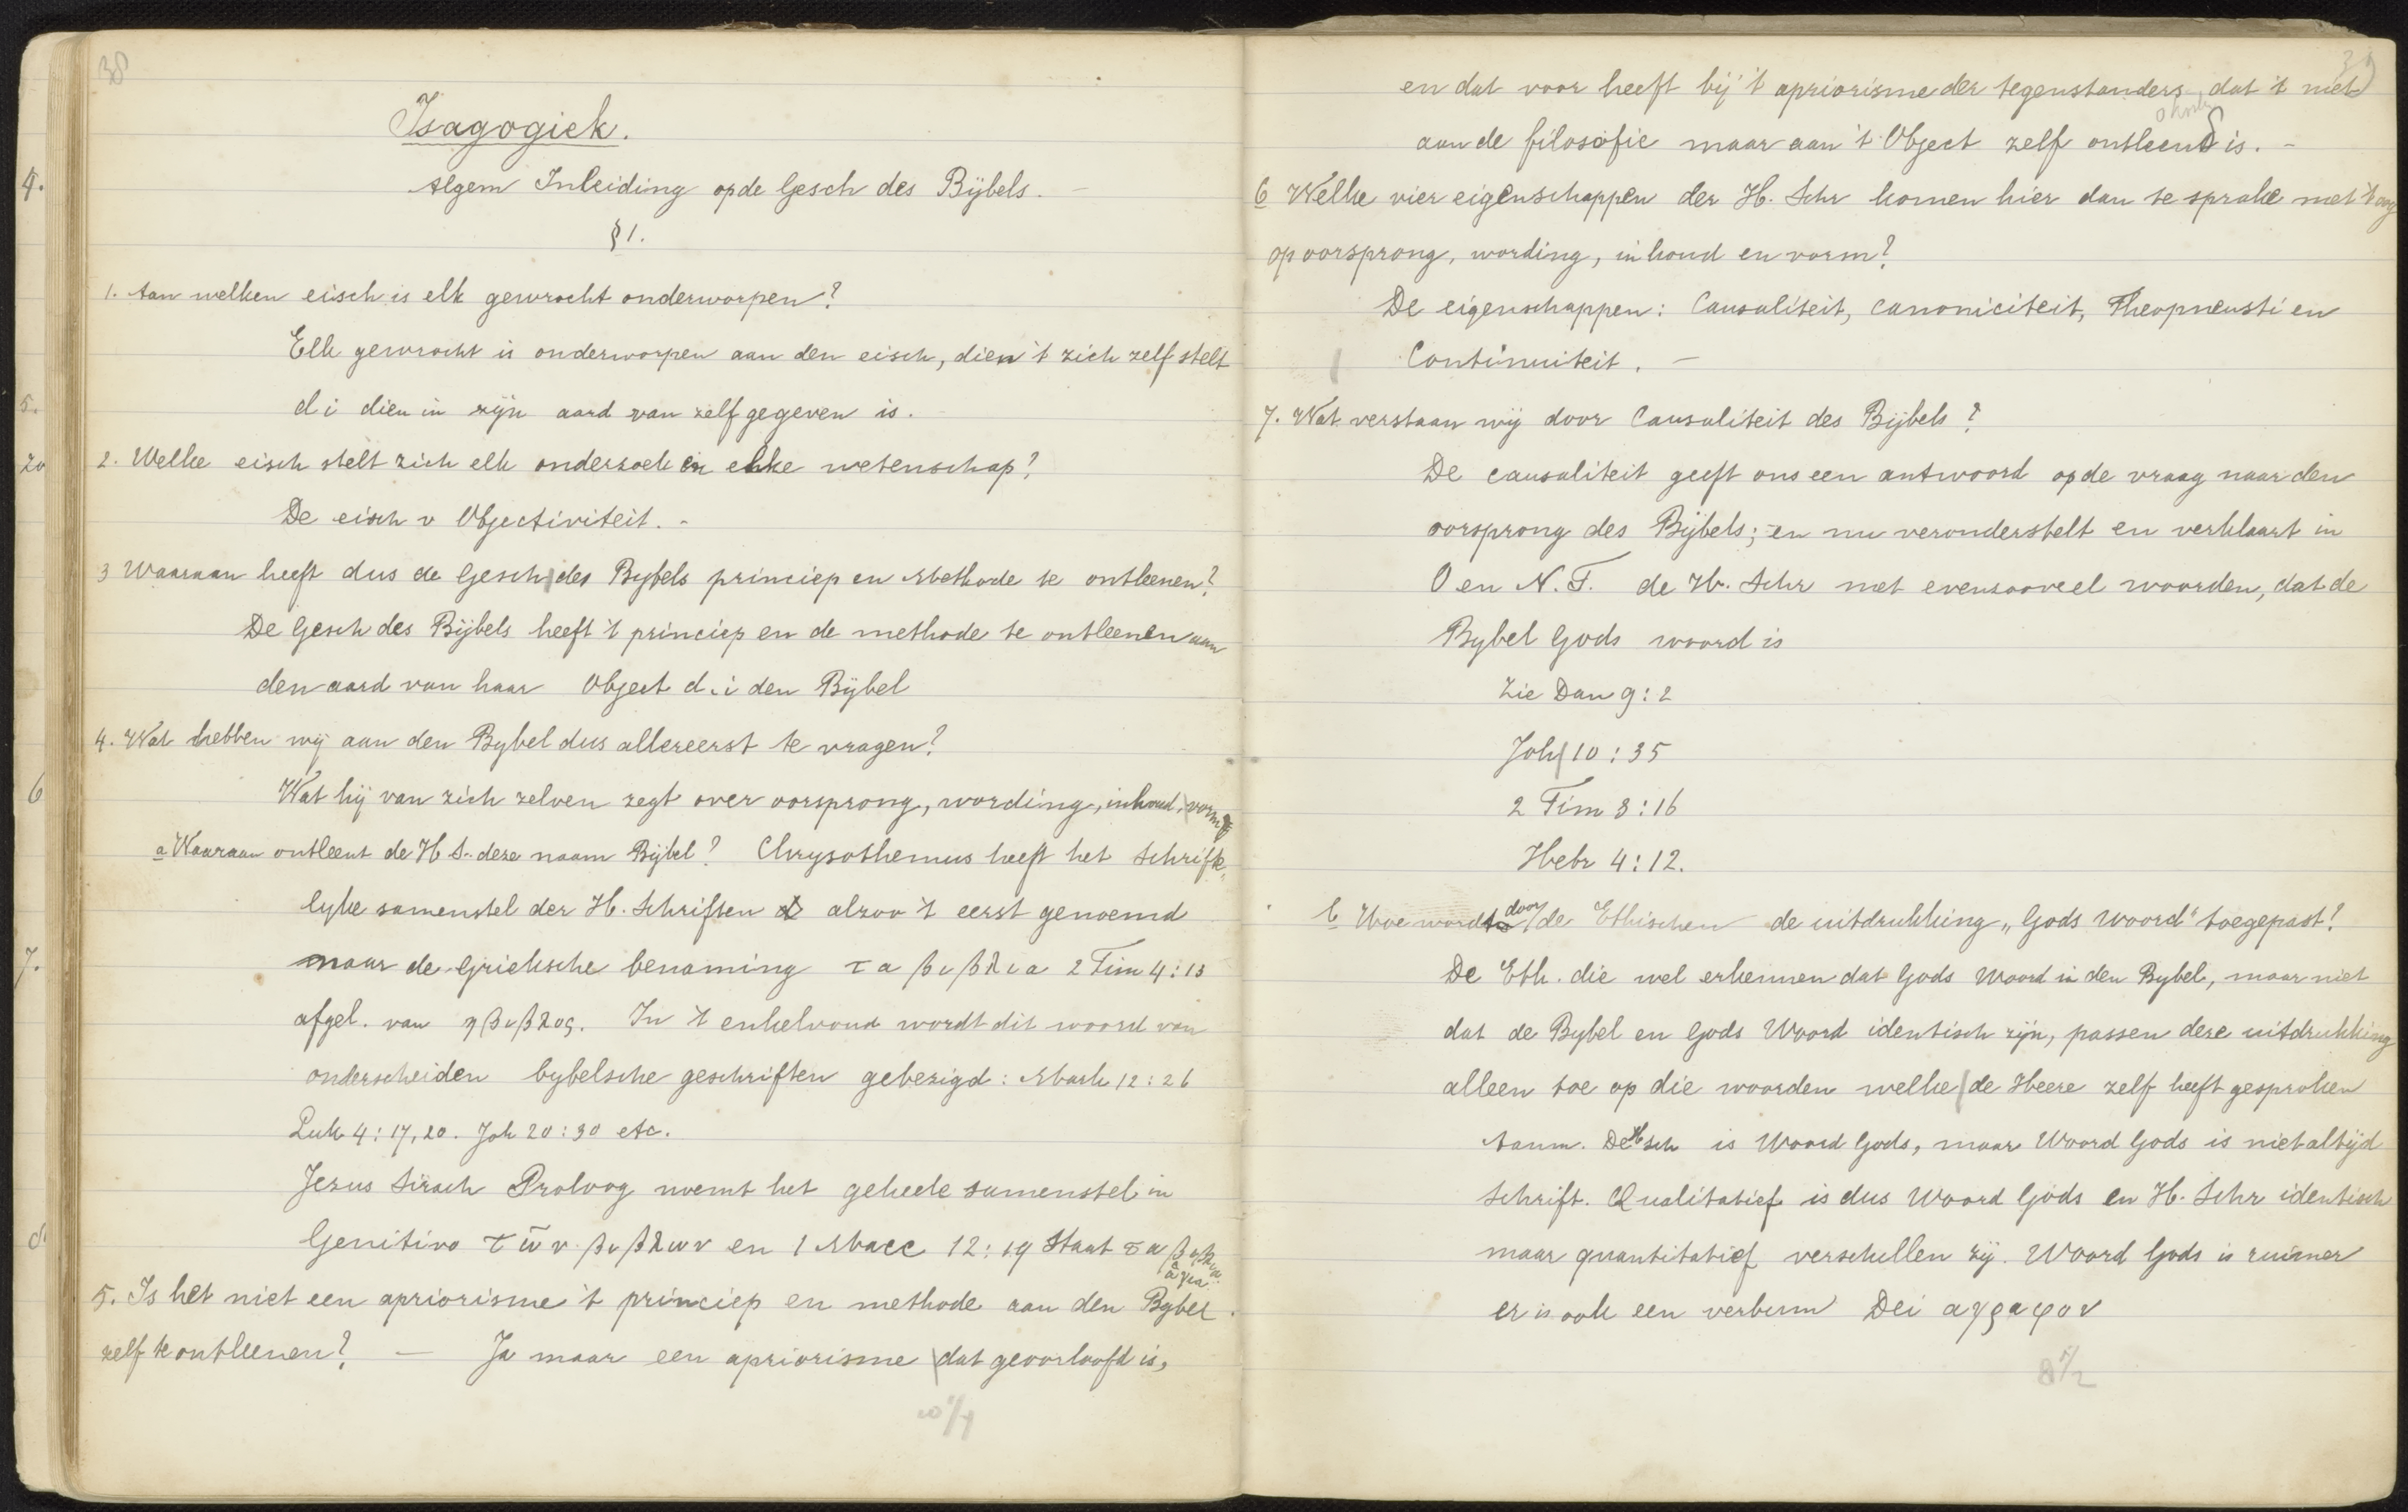 38
Isagogiek.
Algem Inleiding op de Gesch des Bijbels. –
§ 1.
1. Aan welken eisch is elk gewrocht onderworpen?
Elk gewrocht is onderworpen aan den eisch, dien 't zich zelf stelt
d i dien in zijn aard van zelf gegeven is.
2. Welke eisch stelt zich elk onderzoek in elke wetenschap?
De eisch v Objectiviteit. -
3 Waaraan heeft dus de Gesch des Bybels princiep en Methode te ontleenen?
De Gesch des Bijbels heeft 't princiep en de methode te ontleenen aan
den aard van haar Object d. i den Bijbel
4. Wat hebben wij aan den Bybel dus allereerst te vragen?
Wat hij van zich zelven zegt over oorsprong, wording, inhoud, vorm
a Waaraan ontleent de H S. deze naam Bijbel? Chrysothemus heeft het Schrift-
lyke samenstel der H. Schriften alzoo 't eerst genoemd
maar de Grieksche benaming τα βιβλια 2 Tim 4:13
afgel. van η βιβλος. In 't enkelvoud wordt dit woord van
onderscheiden bybelsche geschriften gebezigd: Mark 12:26
Luk 4:17,20. Joh 20:30 etc.
Jezus Sirach Proloog noemt het geheele samenstel in
Genitivo των βιβλων en 1 Macc 12:19 Staat τα βιβλια
αγια
5. Is het niet een apriorisme 't princiep en methode aan den Bybel.
zelf te ontleenen? — Ja maar een apriorisme dat geoorloofd is,
39
en dat voor heeft bij 't apriorisme der tegenstanders dat 't niet
aan de filosofie maar aan 't Object zelf ontleend is. -
6 Welke vier eigenschappen der H. Schr komen hier dan te sprake met 't oog
op oorsprong, wording, inhoud en vorm?
De eigenschappen: Causaliteit, canoniciteit, Theopneusti en
Continuiteit. –
7. Wat verstaan wij door Causaliteit des Bijbels?
De causaliteit geeft ons een antwoord op de vraag naar den
oorsprong des Bijbels; en nu veronderstelt en verklaart in
O en N. T. de H. Schr met evenzooveel woorden, dat de
Bybel Gods woord is
Zie Dan 9:2
Joh 10:35
2 Tim 3:16
Hebr 4:12.
b Hoe wordt door de Ethischen de uitdrukking „Gods woord" toegepast?
De Eth. die wel erkennen dat Gods Woord in den Bybel, maar niet
dat de Bybel en Gods Woord identisch zijn, passen deze uitdrukking
alleen toe op die woorden welke de Heere zelf heeft gesproken
Aanm. De H Sch is Woord Gods, maar Woord Gods is niet altijd
Schrift. Qualitatief is dus Woord Gods en H. Schr identisch
maar quantitatief verschillen zij. Woord Gods is ruimer
er is ook een verbum Dei αγραφον